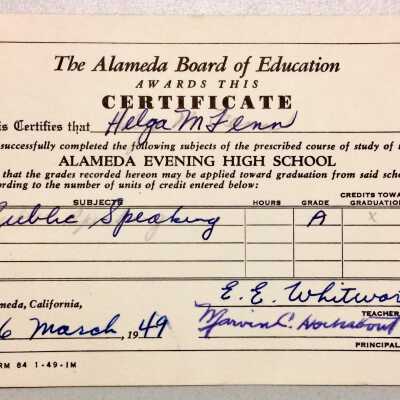 The Alameda Board of Education
AWARDS THIS
CERTIFICATE
is Certifies that Helga M Fenn
successfully completed the following subjects of the prescribed course of study of t
ALAMEDA EVENING HIGH SCHOOL
that the grades recorded hereon may be applied toward graduation from said scho
ording to the number of units of credit entered below:
SUBJECTS HOURS GRADE CREDITS TOWA GRADUATION
Public Speaking A x
meda, California, E. E. Whitwor
TEACHER
6 March, 1949 Marvin C.
PRINCIPAL
RM 84 1-49-1M